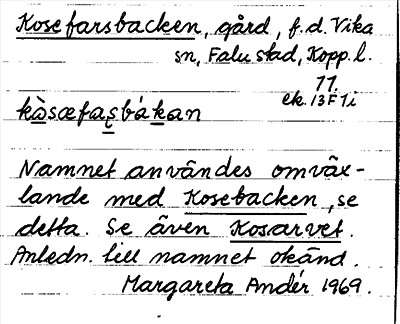 Kosefarsbacken, gård, f.d. Vika
sn, Falu stad, Kopp. l.
11.
ek. 13F 1i
kòsæfaʂbákan
Namnet användes omväx-
lande med Kosebacken, se
detta. Se även Kosarvet.
Anledn. till namnet okänd.
Margareta Andér 1969.